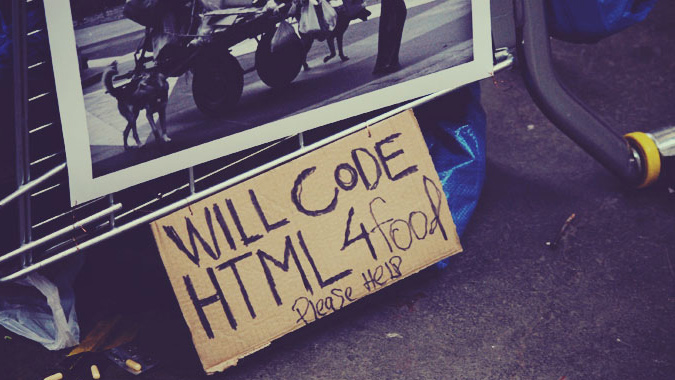 WILL CODE
HTML 4 food
Please HELP